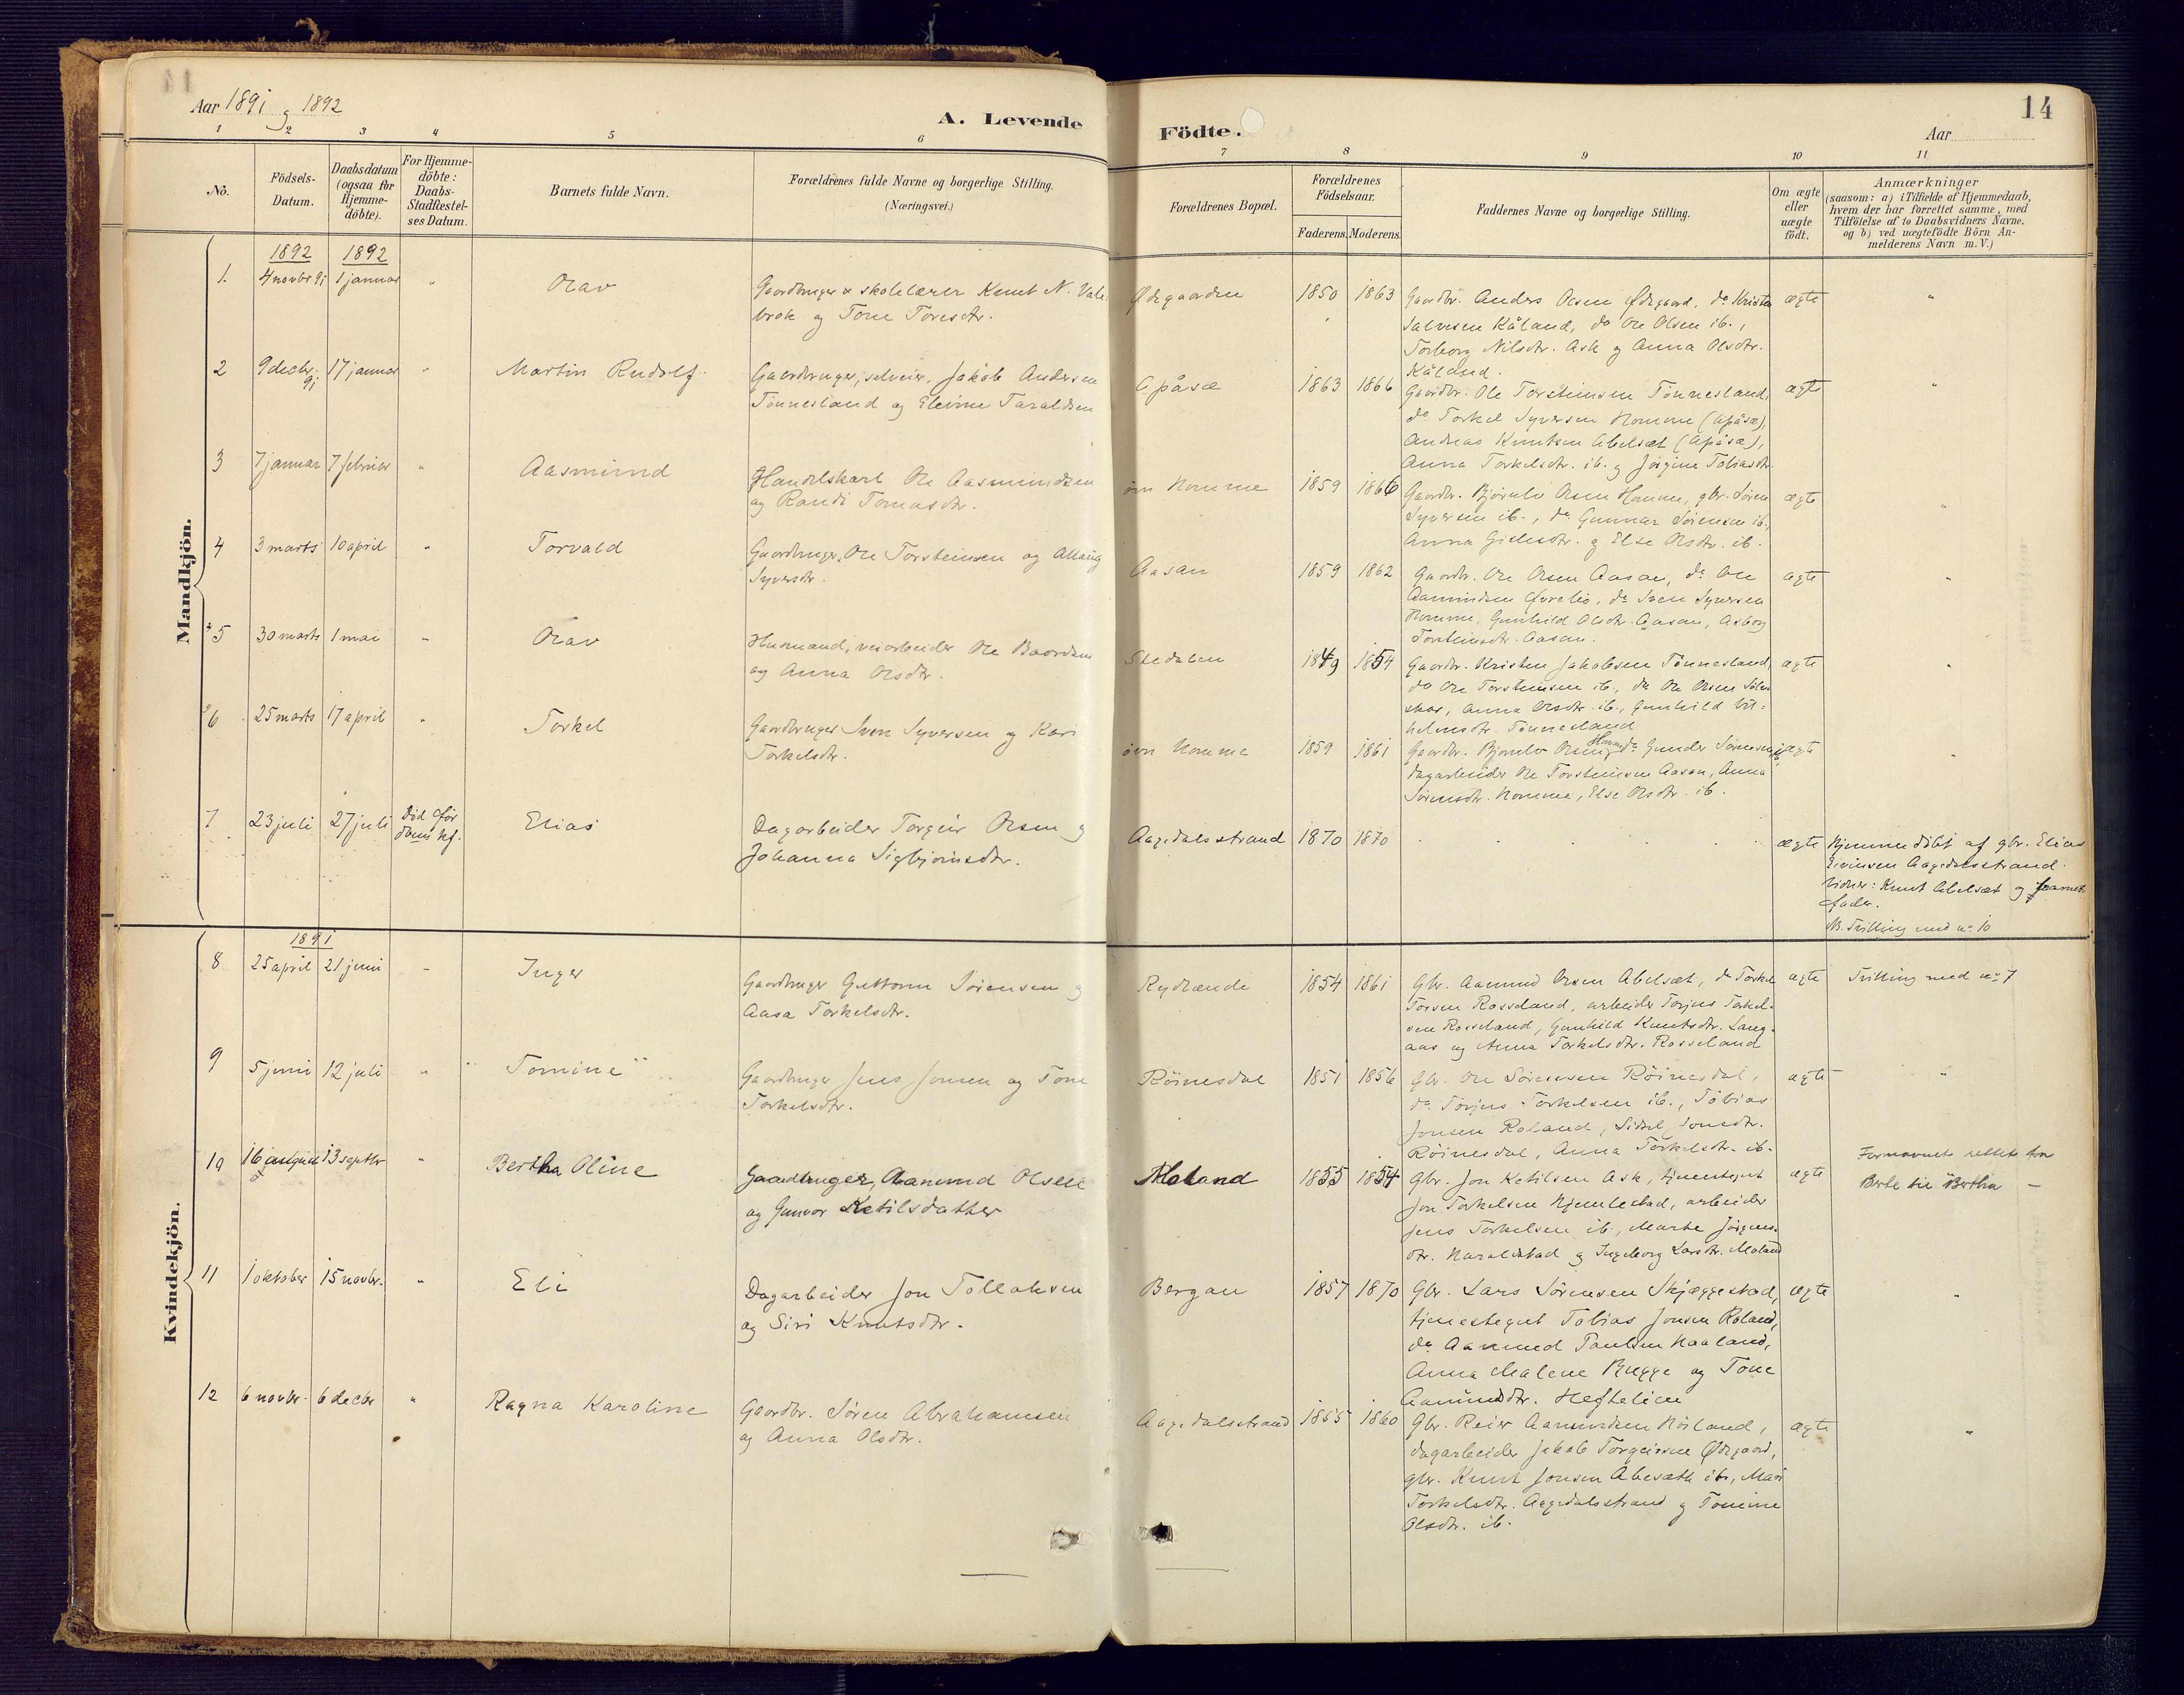 Aar 1891 og 1892
A. Levende
Födte.
14
Aar
1 2 3 4 5 6 7 8 9 10 11
No.
Födsels-Datum.
Daabsdatum (ogsaa for Hjemme-döbte).
For Hjemme-döbte: Daabs-Stadfæstel-ses Datum.
Barnets fulde Navn.
Forældrenes fulde Navne og borgerlige Stilling.
(Næringsvei.)
Forældrenes Bopæl.
Forældrenes Födselsaar.
Faderens. Moderens.
Faddernes Navne og borgerlige Stilling.
Om ægte eller uægte födt.
Anmærkninger
(saasom: a) i Tilfælde af Hjemmedaab, hvem der har forrettet samme, med Tilföielse af to Daabsvidners Navne, og b) ved uægtefödte Börn An-melderens Navn m.V.)
Mandkjön.
1892 1892
1. 4 novbr 91 1 januar " Olav
Gaardbruger & skolelærer Knut N. Vale-
brok og Tone Toresdtr.
Ødegaarden 1850 1863
Gaardbr. Anders Olsen Ødegaard, do Kristen
Salvesen Kåland, do Ole Olsen ib.,
Torborg Nilsdtr. Ask og Anna Olsdtr.
Kåland.
ægte "
2 9 decbr. 91 17 januar " Martin Rudolf
Gaardbruger, selveier, Jakob Andersen
Tönnesland og Elevine Taraldsen
Apåsæ 1863 1866
Gaardbr. Ole Torsteinsen Tönnesland,
do Torkel Syversen Homme (Apåsæ),
Andreas Knutsen Abelsæt (Apåsæ),
Anna Torkelsdtr. ib. og Jörgine Tobiasdtr.
ægte "
3 7 januar 7 februar " Aasmund
Handelskarl Ole Aasmundsen
og Randi Tomasdtr.
övr Homme 1859 1866
Gaardbr. Björnulv Olsen Homme, gbr. Sören
Syversen ib., do Gunnar Sörensen ib.,
Anna Gielsdtr. og Else Olsdtr. ib.
ægte "
4 3 marts 10 april " Torvald
Gaardbruger, Ole Torsteinsen og Allaug
Syversdtr.
Aasan 1859 1862
Gaardbr. Ole Olsen Aasan, do Ole
Aanundsen Øvrelio, do Sven Syversen
Homme, Gunhild Olsdtr. Aasan, Asborg
Torsteinsdtr. Aasan.
ægte "
5 30 marts 1 mai " Olav
Husmand, veiarbeider Ole Baardsen
og Anna Olsdtr.
Stedalen 1849 1854
Gaardbr. Kristen Jakobsen Tönnesland,
do Ole Torsteinsen ib., do Ole Olsen
Anna Olsdtr. ib., Gunhild Vil-
helmsdtr. Tönnesland
ægte "
6 25 marts 17 april " Torkel
Gaardbruger Sven Syversen og Kari
Torkelsdtr.
övr Homme 1859 1861
Gaardbr. Björnulv Olsen Homme, do Gunder Sörensen ib.
Dagarbeider Ole Torsteinsen Aasan, Anna
Sörensdtr. Homme, Else Olsdtr. ib.
ægte "
7 23 juli 27 juli Död för Elias
Dagarbeider Torgeir Olsen og
Johanna Sigbjörnsdtr.
Aagedalsstrand 1870 1870
ægte Hjemmedöbt af gbr. Elias
Eivinsen Aagedalsstrand.
Vidner: Knut Abelsæt og barnets
fader.
NB. Tvilling med no 10
Kvindekjön.
1891
8 25 april 21 juni " Inger
Gaardbruger Guttorm Sörensen og
Aasa Torkelsdtr.
Rydlænde 1854 1861
Gbr. Aamund Olsen Abelsæt, do Torkel
Torsen Rosseland, arbeider Torjus Torkel-
sen Rosseland, Gunhild Knutsdtr. Lang-
aas og Anna Torkelsdtr. Rosseland
ægte Tvilling med no 7
9 5 juni 12 juli " Tomine
Gaardbruger Jens Jonsen og Tone
Torkelsdtr.
Röinesdal 1851 1856
Gbr. Ole Sörensen Röinesdal,
do Torjus Torkelsen ib., Tobias
Jonsen Roland, Sidsel Jonsdtr.
Röinesdal, Anna Torkelsdtr. ib.
ægte "
10 16 august 13 septbr " Bertha Oline
Gaardbruger, Aanund Olsen
og Gunvor Ketilsdatter
Moland 1855 1854
Gbr. Jon Ketilsen Ask, tjenestegut
Jon Torkelsen Hjemlestad, arbeider
Jens Torkelsen ib., Marte Jörgens-
dtr. Haraldstad og Ingeborg Larsdtr. Moland
ægte Fornavnet rettet fra
Berte til Bertha —
11 1 oktober 15 novbr. " Eli
Dagarbeider Jon Tollaksen
og Siri Knutsdtr.
Bergan 1857 1870
Gbr. Lars Sörensen Skjæggestad,
tjenestegut Tobias Jonsen Roland,
do Aanund Paulsen Haaland,
Anna Malene Bugge og Tone
Aanundsdtr. Heftelien
ægte "
12 6 novbr. 6 decbr " Ragna Karoline
Gaardbr. Sören Abrahamsen
og Anna Olsdtr.
Aagedalsstrand 1855 1860
Gbr. Reier Aanundsen Höiland,
dagarbeider Jakob Torgeirsen Ødegaard,
gbr. Knut Jonsen Abesæth ib., Mari
Torkelsdtr. Aagedalsstrand og Tomine
Olsdtr. ib.
ægte "